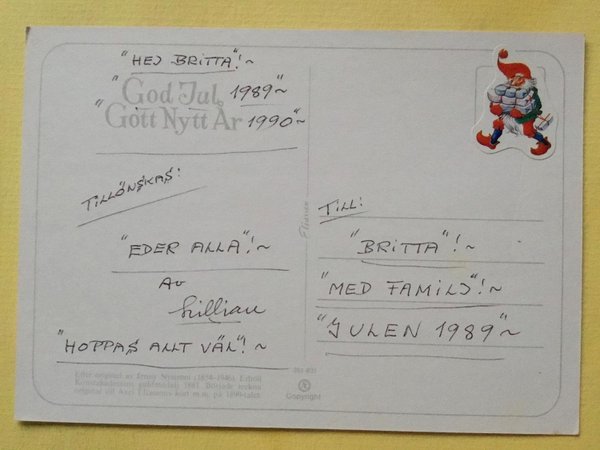 "HEJ BRITTA"!~
"God Jul 1989"~
"Gott Nytt År 1990"~
TILLÖNSKAS:
"EDER ALLA"!~
AV
Lillian
"HOPPAS ALLT VÄL"!~
Efter original av Jenny Nyström (1854-1946). Erhöll
Konstakademiens guldmedalj 1881. Började teckna
original till Axel Eliassons kort m.m. på 1890-talet.
Copyright
TILL:
"BRITTA"!~
"MED FAMILJ"!~
"JULEN 1989"~